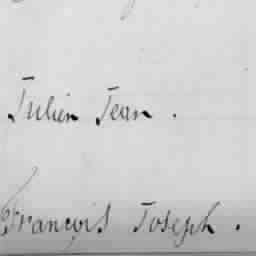 Julien Jean .
François Joseph .